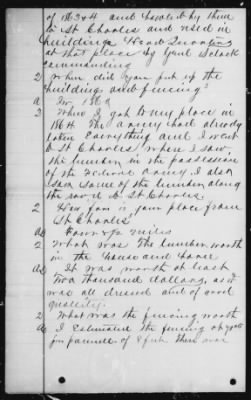 of 1863 & 4 and hauled by them
to St Charles and used in
building Head Quarters
at that place by Genl
commanding
Q When did you put up the
building and fencing?
A In 186
Q When I got to my place in
1864 the army had already
taken everything and I went
to St Charles when I saw
the lumber in the possession
of the Federal Army. I also
saw some of the lumber along
the road to St Charles.
Q How far is your place from
St Charles
A Four miles
Q What was the lumber worth
in the house and barn
A It was worth at least
Two thousand dollars, as it
was all dressed and of good
quality.
Q What was the fencing worth
A I estimated the fencing at
for pannels of there was